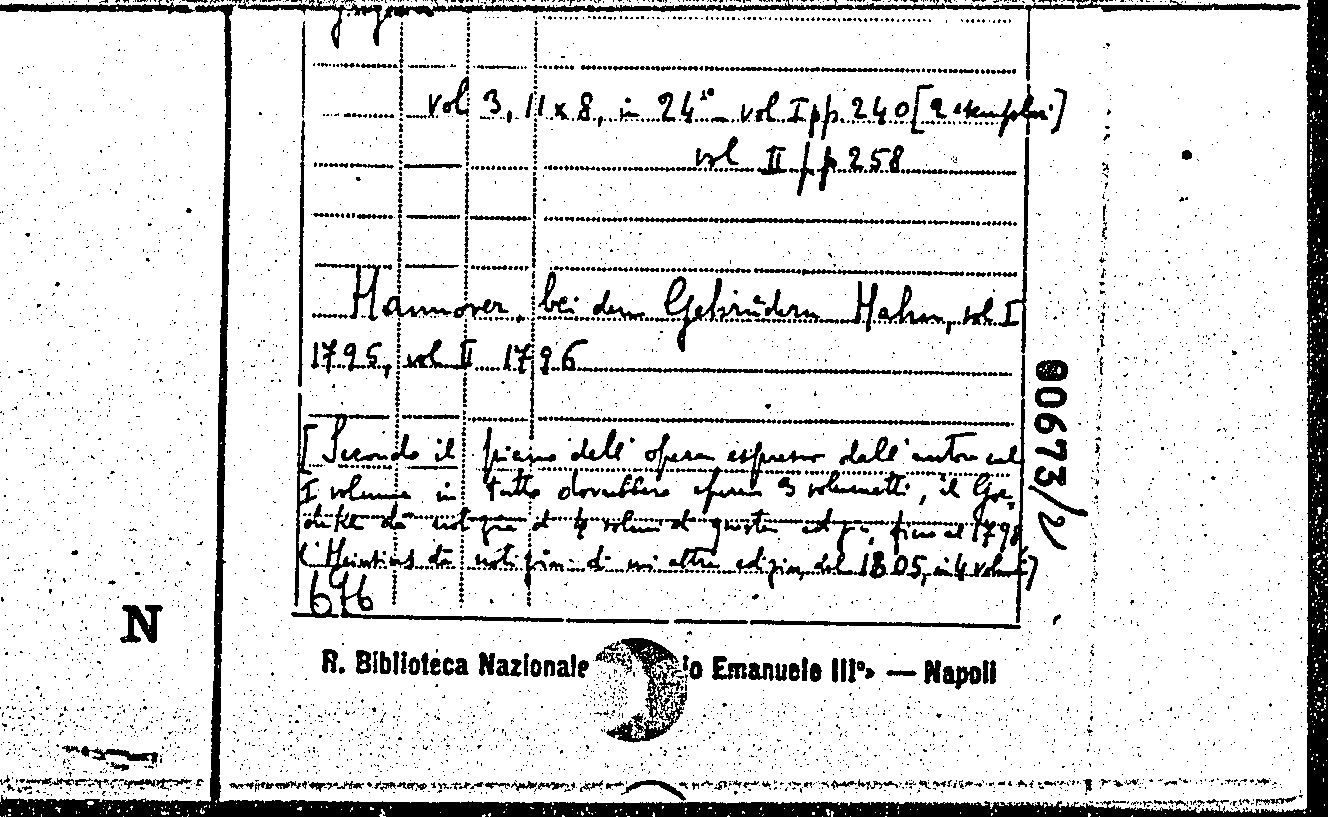 vol 3, 11 x 8, in 24° – vol I pp. 240 [2 esemplari]
vol II pp 258
Hannover, bei den Gebrüdern Hahn, vol I
1795, vol II 1796
[Secondo il piano dell'opera espresso dall'autore nel
I volume in tutto dovrebbero essere 3 volumetti, il Goe-
deke dà notizia di 4 volumi di questa ediz., fino al 1798
(Heinsius dà notizia di un'altra edizione del 1805, in 4 volumi)
676
R. Biblioteca Nazionale o Emanuele III°» — Napoli
00673/2
N